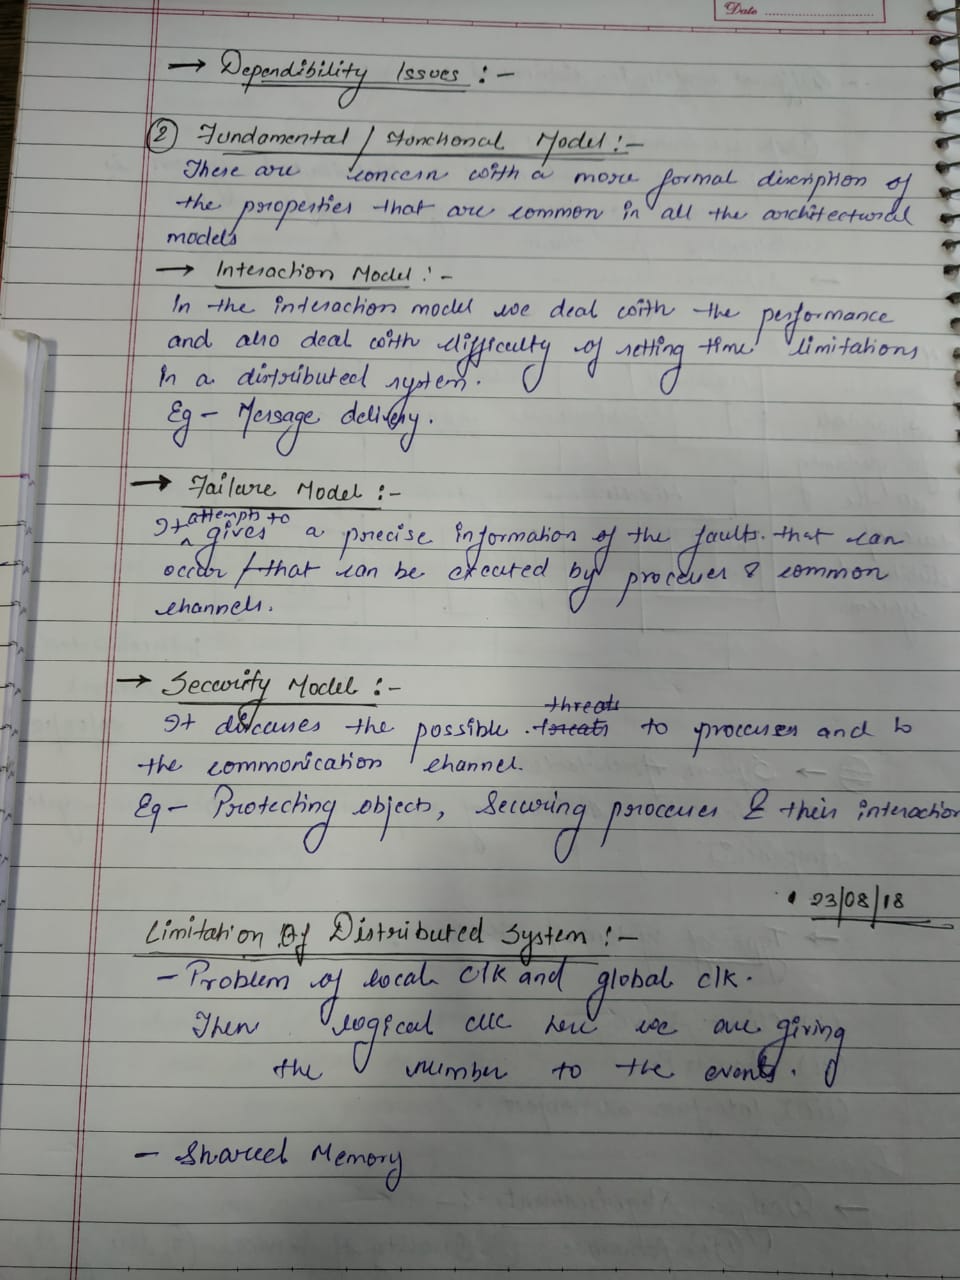 Date
→ Dependibility Issues :-
② Fundamental / Functional Model :-
These are concern with a more formal discription of
the properties that are common in all the architectural
models
→ Interaction Model :-
In the interaction model we deal with the performance
and also deal with difficulty of setting time limitations
in a distributed system.
Eg - Message delivery.
→ Failure Model :-
attempts to
It ^ gives a precise information of the faults. that can
occur / that can be created by processes & common
channels.
→ Security Model :-
threats
It discusses the possible threats to processes and to
the communication channel.
Eg - Protecting objects, Securing processes & their interaction
23/08/18
Limitation Of Distributed System :-
- Problem of local clk and global clk.
Then logical clk here we are giving
the number to the events.
- Shared Memory